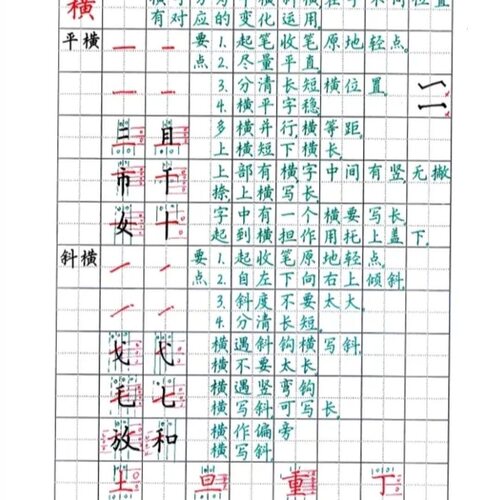 横
有对应的变化运用
平横 一 一 要点 1. 起笔收笔原地轻点。
2. 尽量平直。
一 一 3. 分清长短横位置。
4. 横平字稳。
三 且 多横并行，横等距。
上横短下横长。
市 干 上部有横，字中间有竖，无撇
捺，上横写长。
女 十 字中有一个横要写长
起到横担作用，托上盖下。
斜横 要点 1. 起收笔原地轻点。
2. 自左下向右上倾斜。
3. 斜度不要太大。
4. 分清长短。
戈 弋 横遇斜钩横写斜，
横不要太长。
毛 七 横遇竖弯钩
横写斜，可写长。
放 和 横作偏旁
横写斜。
土 旦 重 丁